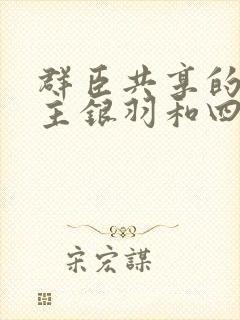 群臣共享的
主银羽和四
宋宏謀